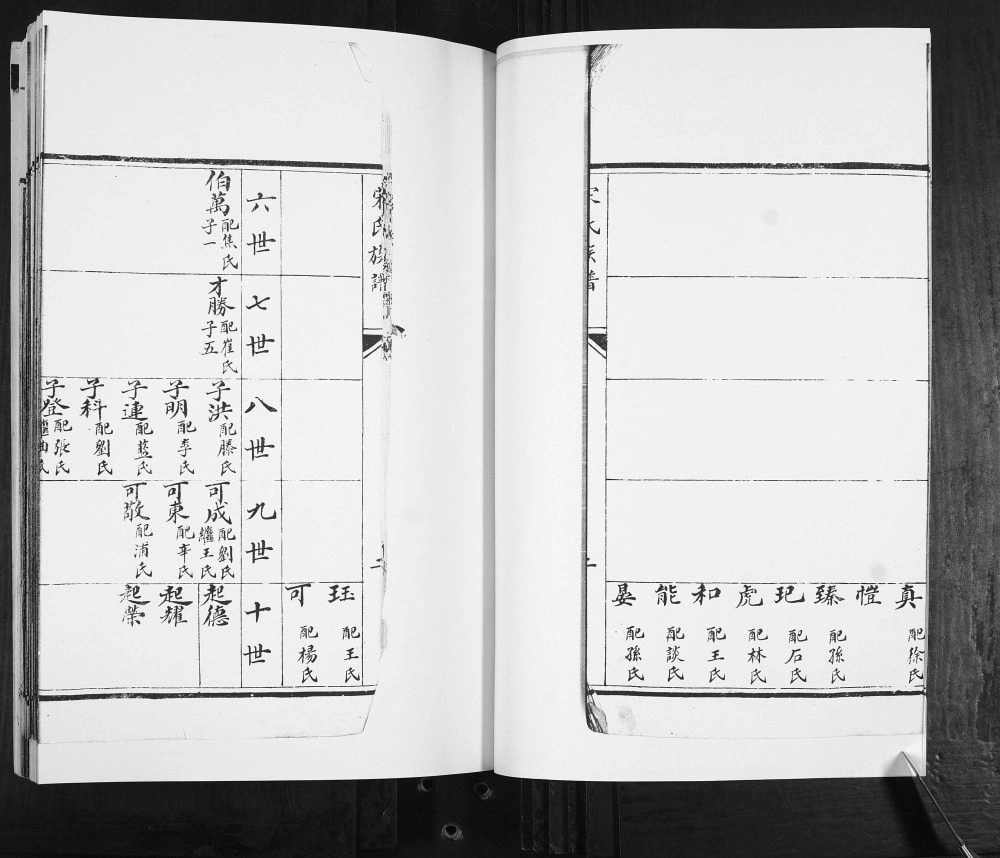 真 配徐氏
愷
臻 配孫氏
玘 配石氏
虎 配林氏
和 配王氏
能 配談氏
晏 配孫氏
宋氏族譜
二
宋氏族譜
二
珏 配王氏
可 配楊氏
六世
七世
八世
九世
十世
伯萬 配焦氏 子一
才勝 配崔氏 子五
子洪 配滕氏
子明 配李氏
子連 配藍氏
子科 配劉氏
子登 配張氏
可成 配劉氏 繼王氏
可東 配辛氏
可敬 配浦氏
起德
起耀
起榮